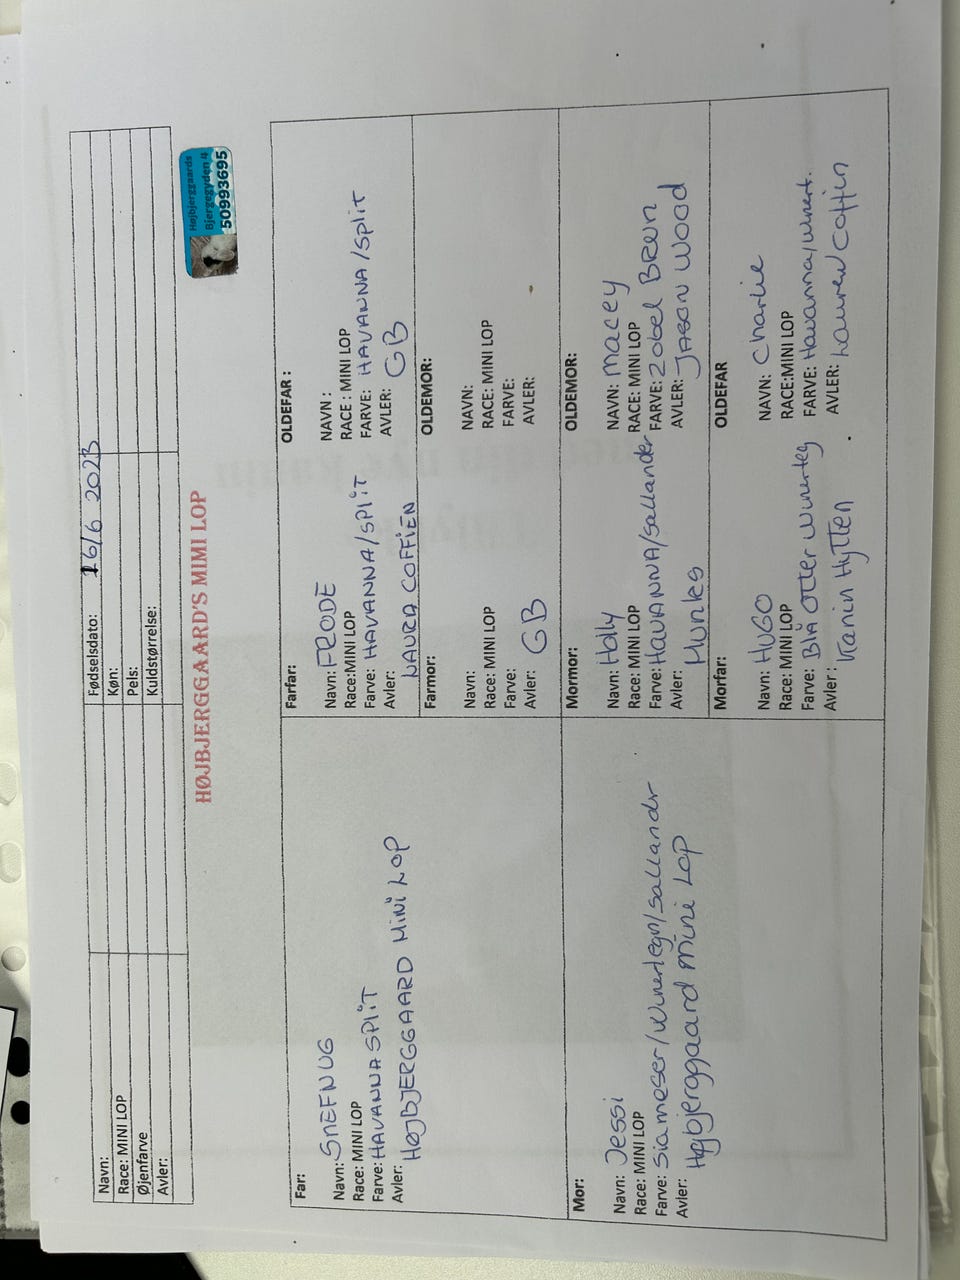 Navn:
Race: MINI LOP
Øjenfarve
Avler:
Fødselsdato: 16/6 2023
Køn:
Pels:
Kuldstørrelse:
HØJBJERGGAARD'S MIMI LOP
Højbjerggaards
Bjergegyden 4
50993695
Far:
Navn: SNEFNUG
Race: MINI LOP
Farve: HAVANNA SPLIT
Avler:
HØJBJERGGAARD MiNi LOP
Farfar:
Navn: FRODE
Race:MINI LOP
Farve: HAVANNA/SPLIT
Avler:
LAURA COFFIEN
OLDEFAR :
NAVN :
RACE : MINI LOP
FARVE: HAVANNA/split
AVLER: GB
Farmor:
Navn:
Race: MINI LOP
Farve:
Avler: GB
OLDEMOR:
NAVN:
RACE: MINI LOP
FARVE:
AVLER:
Mor:
Navn: Jessi
Race: MINI LOP
Farve: Siameser/Wienertegn/Sallandr
Avler:
Højbjerggaard mini LOP
Mormor:
Navn: Holly
Race: MINI LOP
Farve: HAVANNA/Sallander
Avler:
Munks
OLDEMOR:
NAVN: macey
RACE: MINI LOP
FARVE: Zobel BRUN
AVLER: JASON WOOD
Morfar:
Navn: HUGO
Race: MINI LOP
Farve: Blå otter wienerteg
Avler :
Kanin Hytten
OLDEFAR
NAVN: Charlie
RACE:MINI LOP
FARVE: Havanna/wienert.
AVLER: Lauren Coffin